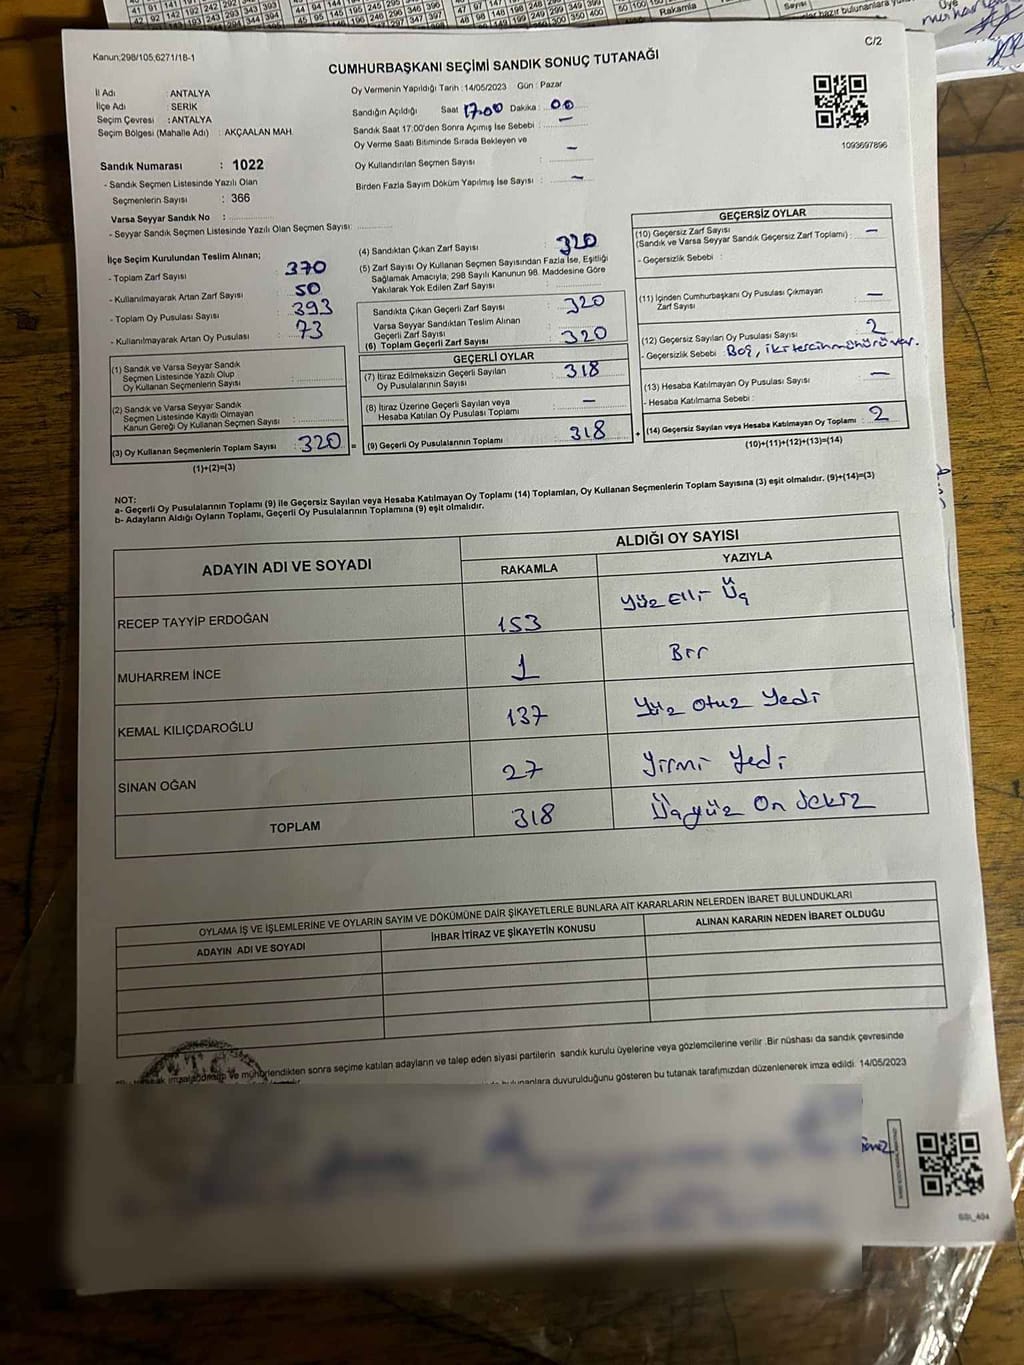 C/2
Kanun;298/105,6271/18-1
CUMHURBAŞKANI SEÇİMİ SANDIK SONUÇ TUTANAĞI
İl Adı : ANTALYA
İlçe Adı : SERİK
Seçim Çevresi : ANTALYA
Seçim Bölgesi (Mahalle Adı) : AKÇAALAN MAH.
Sandık Numarası : 1022
- Sandık Seçmen Listesinde Yazılı Olan
Seçmenlerin Sayısı : 366
Varsa Seyyar Sandık No :
- Seyyar Sandık Seçmen Listesinde Yazılı Olan Seçmen Sayısı:
Oy Vermenin Yapıldığı Tarih :14/05/2023 Gün : Pazar
Sandığın Açıldığı Saat 17:00 Dakika : 00
Sandık Saat 17:00'den Sonra Açımış İse Sebebi : -
Oy Verme Saati Bitiminde Sırada Bekleyen ve
Oy Kullandırılan Seçmen Sayısı : -
Birden Fazla Sayım Döküm Yapılmış İse Sayısı : -
1093697896
İlçe Seçim Kurulundan Teslim Alınan;
- Toplam Zarf Sayısı : 370
- Kullanılmayarak Artan Zarf Sayısı : 50
- Toplam Oy Pusulası Sayısı : 393
- Kullanılmayarak Artan Oy Pusulası : 73
(1) Sandık ve Varsa Seyyar Sandık
Seçmen Listesinde Yazılı Olup
Oy Kullanan Seçmenlerin Sayısı :
(2) Sandık ve Varsa Seyyar Sandık
Seçmen Listesinde Kayıtlı Olmayan
Kanun Gereği Oy Kullanan Seçmen Sayısı :
(3) Oy Kullanan Seçmenlerin Toplam Sayısı : 320 =
(1)+(2)=(3)
(4) Sandıktan Çıkan Zarf Sayısı : 320
(5) Zarf Sayısı Oy Kullanan Seçmen Sayısından Fazla İse, Eşitliği
Sağlamak Amacıyla, 298 Sayılı Kanunun 98. Maddesine Göre
Yakılarak Yok Edilen Zarf Sayısı :
Sandıkta Çıkan Geçerli Zarf Sayısı : 320
Varsa Seyyar Sandıktan Teslim Alınan
Geçerli Zarf Sayısı :
(6) Toplam Geçerli Zarf Sayısı : 320
GEÇERLİ OYLAR
(7) İtiraz Edilmeksizin Geçerli Sayılan
Oy Pusulalarının Sayısı : 318
(8) İtiraz Üzerine Geçerli Sayılan veya
Hesaba Katılan Oy Pusulası Toplamı : -
(9) Geçerli Oy Pusulalarının Toplamı : 318 +
GEÇERSİZ OYLAR
(10) Geçersiz Zarf Sayısı
(Sandık ve Varsa Seyyar Sandık Geçersiz Zarf Toplamı) : -
- Geçersizlik Sebebi :
(11) İçinden Cumhurbaşkanı Oy Pusulası Çıkmayan
Zarf Sayısı : -
(12) Geçersiz Sayılan Oy Pusulası Sayısı : 2
- Geçersizlik Sebebi : Boş, iki tercih mühürü var.
(13) Hesaba Katılmayan Oy Pusulası Sayısı : -
- Hesaba Katılmama Sebebi :
(14) Geçersiz Sayılan veya Hesaba Katılmayan Oy Toplamı : 2
(10)+(11)+(12)+(13)=(14)
NOT:
a- Geçerli Oy Pusulalarının Toplamı (9) ile Geçersiz Sayılan veya Hesaba Katılmayan Oy Toplamı (14) Toplamları, Oy Kullanan Seçmenlerin Toplam Sayısına (3) eşit olmalıdır. (9)+(14)=(3)
b- Adayların Aldığı Oyların Toplamı, Geçerli Oy Pusulalarının Toplamına (9) eşit olmalıdır.
ADAYIN ADI VE SOYADI
ALDIĞI OY SAYISI
RAKAMLA YAZIYLA
RECEP TAYYİP ERDOĞAN 153 Yüz Elli Üç
MUHARREM İNCE 1 Bir
KEMAL KILIÇDAROĞLU 137 Yüz Otuz Yedi
SİNAN OĞAN 27 Yirmi Yedi
TOPLAM 318 Üçyüz On Sekiz
OYLAMA İŞ VE İŞLEMLERİNE VE OYLARIN SAYIM VE DÖKÜMÜNE DAİR ŞİKAYETLERLE BUNLARA AİT KARARLARIN NELERDEN İBARET BULUNDUKLARI
ADAYIN ADI VE SOYADI İHBAR İTİRAZ VE ŞİKAYETİN KONUSU ALINAN KARARIN NEDEN İBARET OLDUĞU
ve mühürlendikten sonra seçime katılan adayların ve talep eden siyasi partilerin sandık kurulu üyelerine veya gözlemcilerine verilir .Bir nüshası da sandık çevresinde
duyurulduğunu gösteren bu tutanak tarafımızdan düzenlenerek imza edildi. 14/05/2023